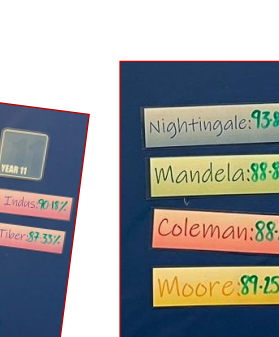 YEAR 11
Indus:90.18%
Tiber:87.33%
Nightingale:93.8
Mandela:88.8
Coleman:88.
Moore:89.25